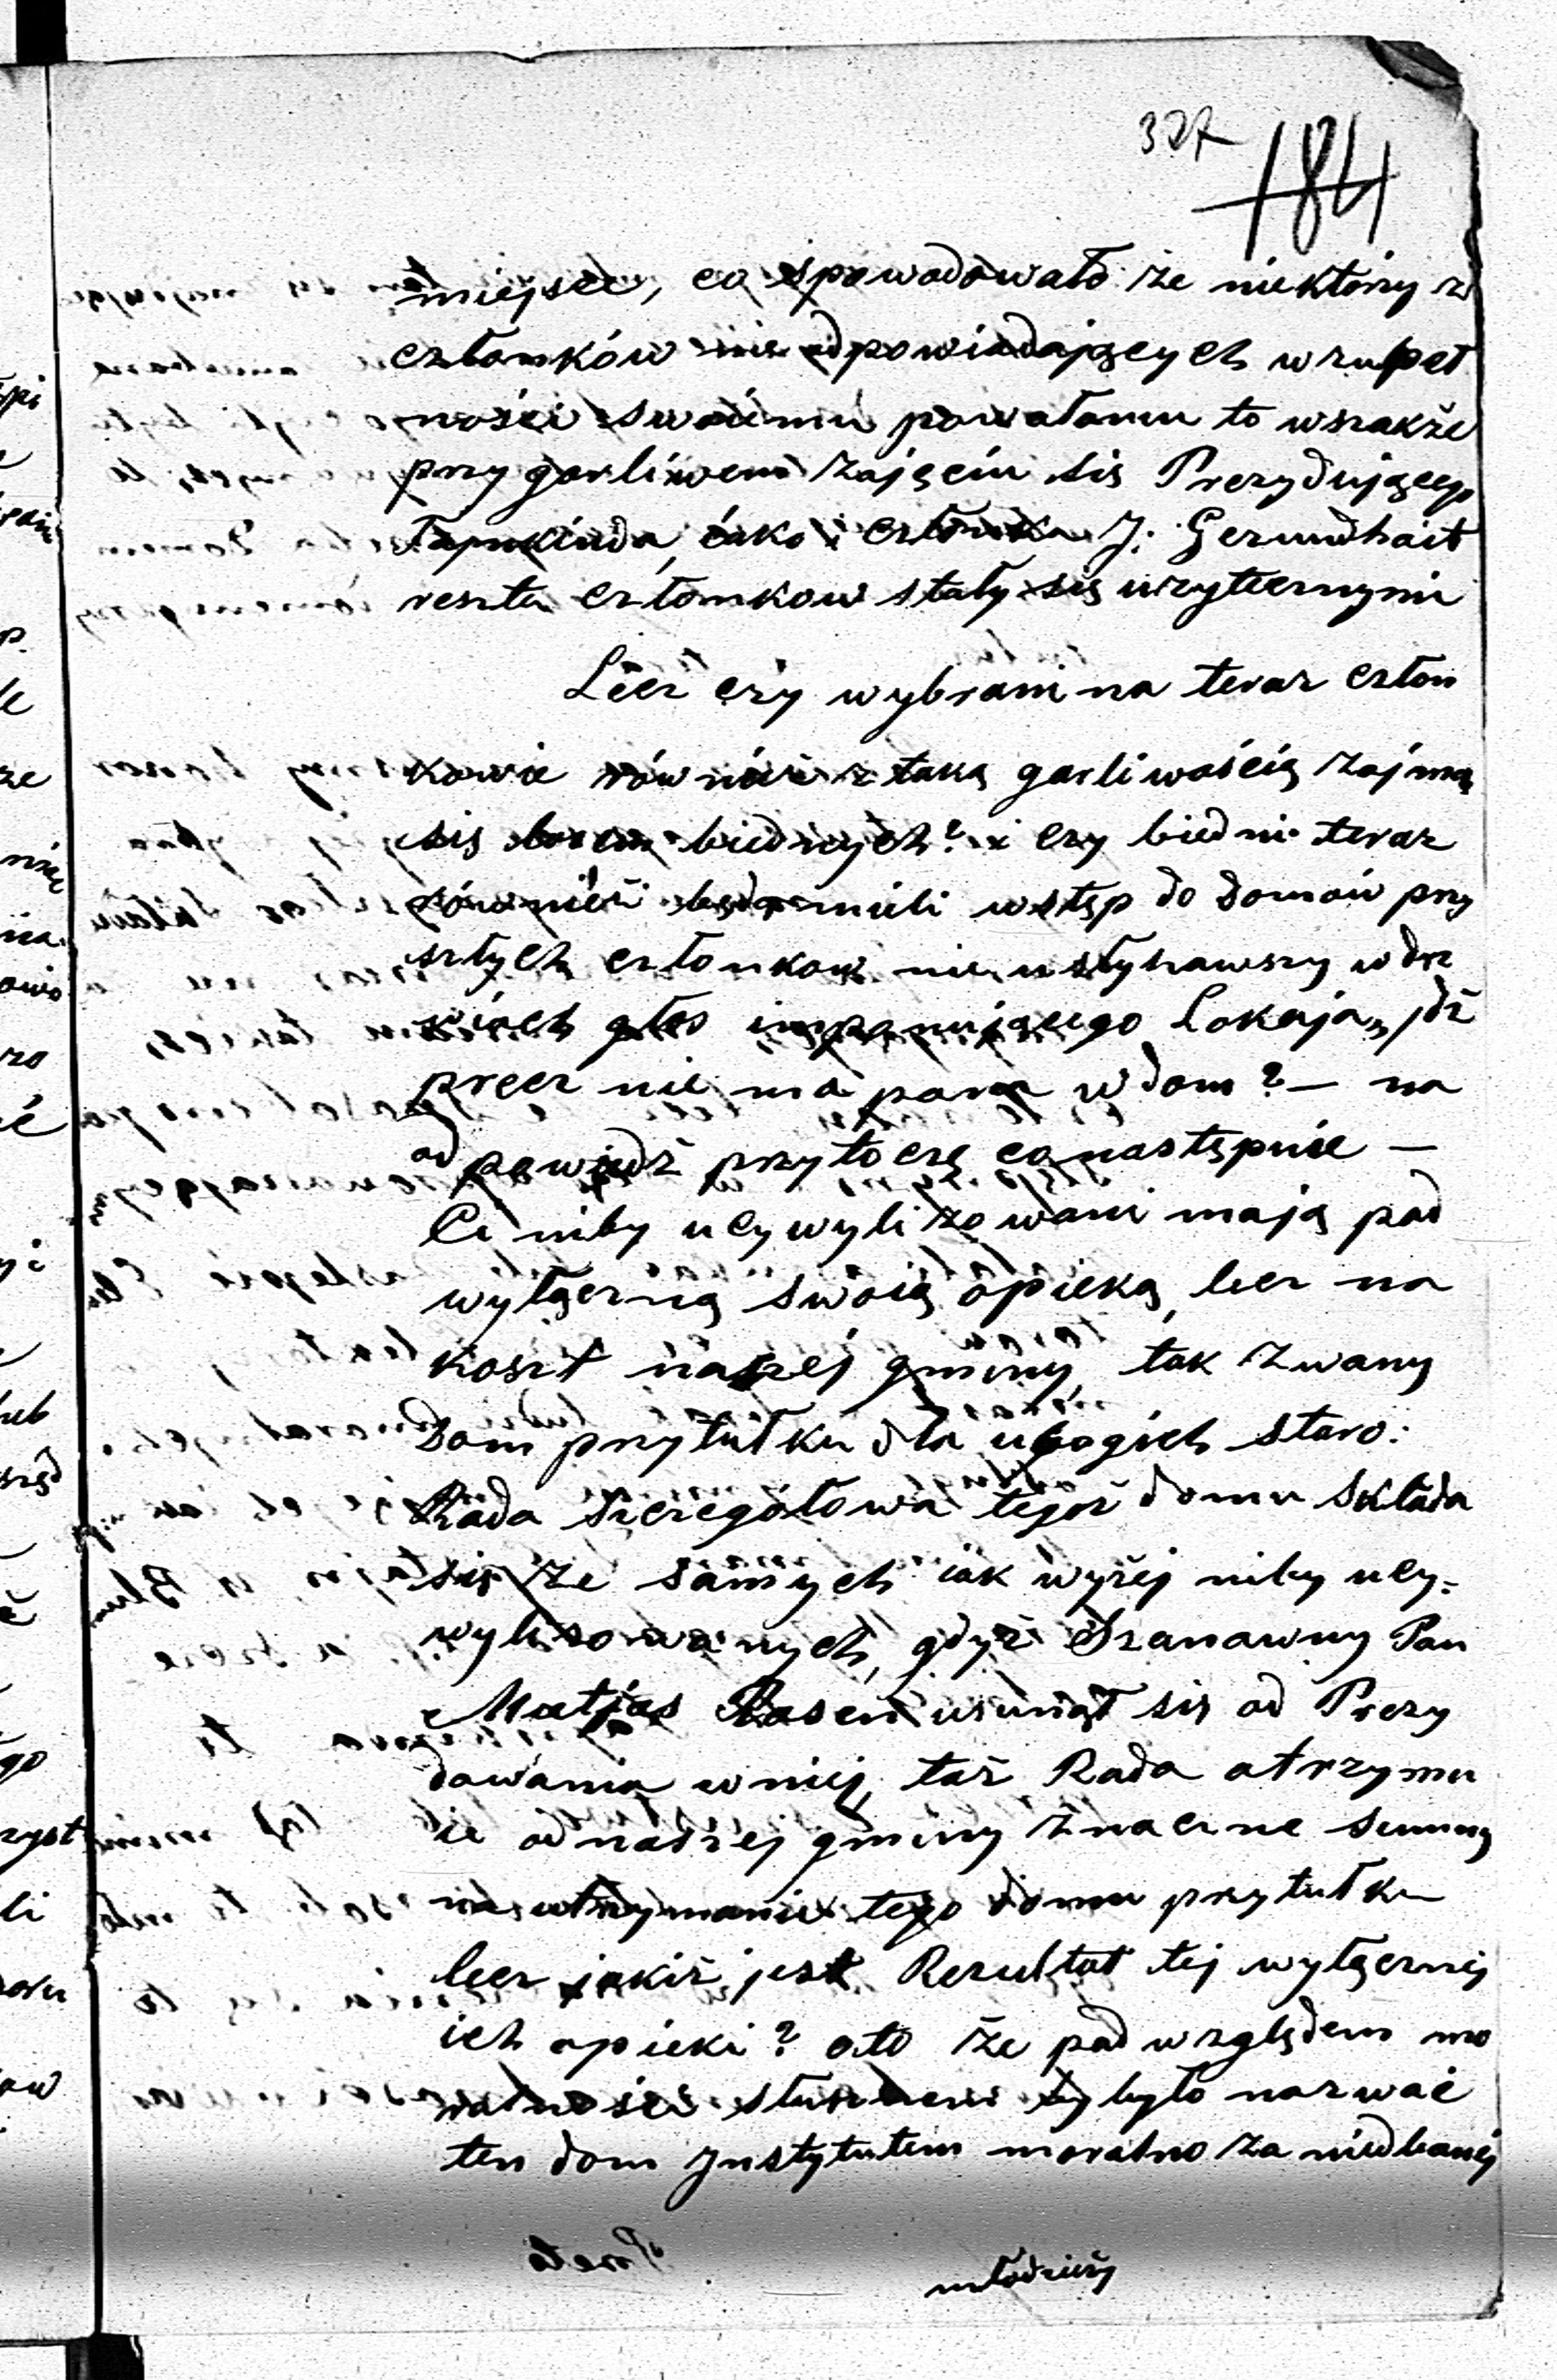 327
184
miejsce, co spowodowało że niektórzy z
członków nie odpowiadających w zupeł
ności swoiému powołaniu to wszakże
przy gorliwem zajęciu się Prezydującego
iako i członka J. Gerundhait
reszta członkow stały się użytecznymi
Lecz czy wybrani na teraz człon
kowie równiéż z taką gorliwością zajmą
się losem biednych? i czy biedni teraz
równiéż będą mieli wstęp do domów przy
szłych członkow nieusłyszawszy w drz
wiach głos imponującego Lokaja „idź
precz nie ma pana w dom? — na
odpowiedź przytoczę co następuie —
Ci niby ucywylizowani mają pod
wyłączną swoią opieką, lecz na
koszt naszéj gminy, tak zwany
Dom przytułku dla ubogich staro:
Rada szczegółowa tegoż domu składa
się ze samych iak wyżéj niby ucy=
wylizowanych, gdyż Szanowny Pan
Matjas Rosen usunął się od Prezy
dowania w niéj, taż Rada otrzymu
ie od naszéj gminy znaczne summy
na utrzymanie tego domu przytułku
lecz jakiż jest Rezultat téj wyłącznéj
ich opieki? oto że pod względem mo
ralności słusznem by było nazwać
ten dom Instytutem moralno zaniedbanéj
młodzieży